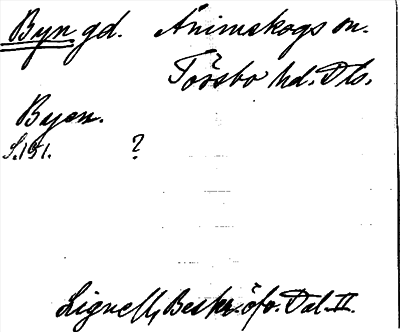 Byn gd. Ånimskogs sn.
Tössbo hd. Dls.
Byen.
S. 151. ?
Lignell, Beskr. öfv. Dal. II.